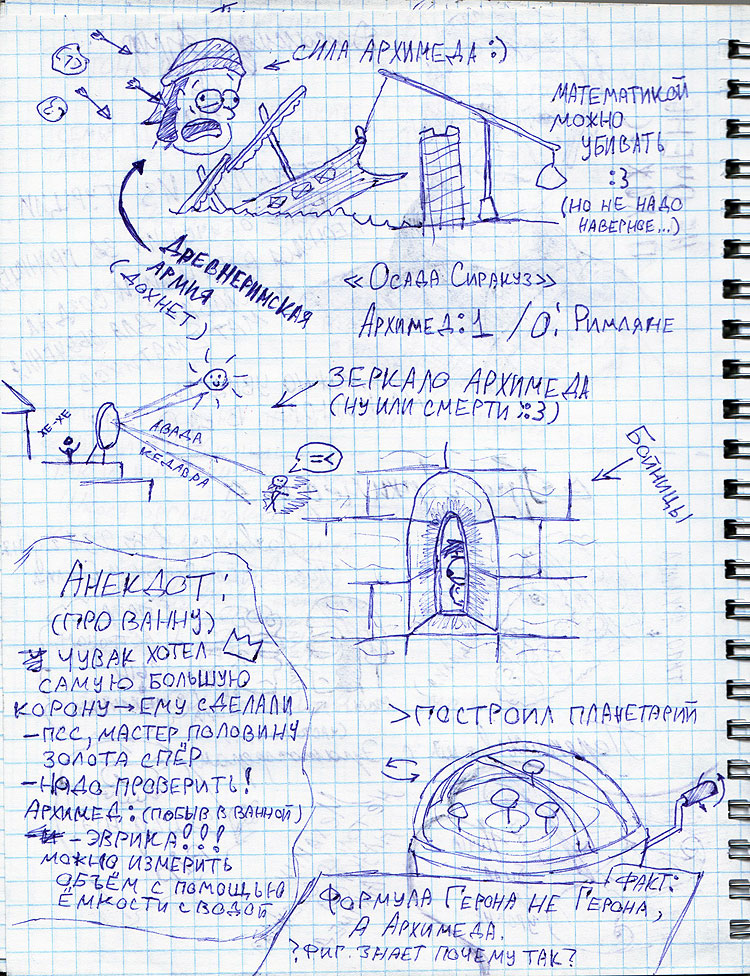 СИЛА АРХИМЕДА :)
МАТЕМАТИКОЙ
МОЖНО
УБИВАТЬ
:3
(НО НЕ НАДО
НАВЕРНОЕ...)
ДРЕВНЕРИМСКАЯ
АРМИЯ
(ДОХНЕТ)
«ОСАДА СИРАКУЗ»
АРХИМЕД: 1 / 0: РИМЛЯНЕ
ЗЕРКАЛО АРХИМЕДА
(НУ ИЛИ СМЕРТИ ::3)
ХЕ-ХЕ
АВАДА
КЕДАВРА
=<
БОЙНИЦЫ
АНЕКДОТ:
(ПРО ВАННУ)
ЧУВАК ХОТЕЛ
САМУЮ БОЛЬШУЮ
КОРОНУ → ЕМУ СДЕЛАЛИ
- ПСС, МАСТЕР ПОЛОВИНУ
ЗОЛОТА СПЁР
- НАДО ПРОВЕРИТЬ!
АРХИМЕД: (ПОБЫВ В ВАННОЙ)
- ЭВРИКА!!!
МОЖНО ИЗМЕРИТЬ
ОБЪЁМ С ПОМОЩЬЮ
ЁМКОСТИ С ВОДОЙ
>ПОСТРОИЛ ПЛАНЕТАРИЙ
ФАКТ:
ФОРМУЛА ГЕРОНА НЕ ГЕРОНА,
А АРХИМЕДА.
? ФИГ. ЗНАЕТ ПОЧЕМУ ТАК?